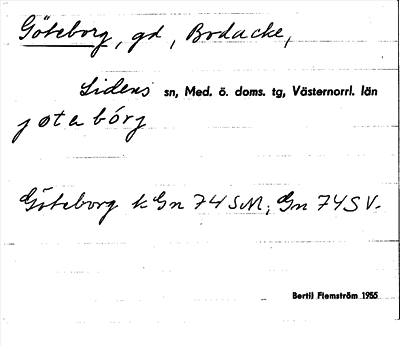 Göteborg, gd, Bodacke,
Lidens sn, Med. ö. doms. tg, Västernorrl. län
jøtabórj
Göteborg k Gn 74 SM; Gn 74 SV.
Bertil Flemström 1955